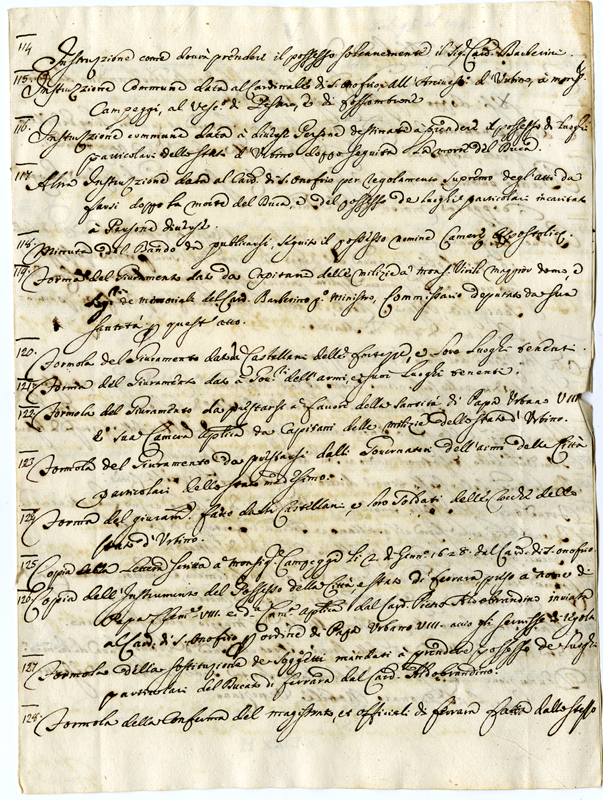 114
Instruzione come dovrà prendere il possesso solennemente il Sig. Card. Barberino
115. Instruzione Commune data al Cardinale di S. Onofrio, all' Arcives. d' Urbino, a mons.
Campeggi, al Vesc. di Pesaro, e di fossombrone
116. Instruzione commune data à diverse Persone destinate a prendere il possesso di luoghi
particolari dello stato d' Urbino doppo seguita la morte del Duca.
117. Altra Instruzione data al Card. di S. Onofrio per regolamento supremo degl' atti da
farsi doppo la morte del Duca, e del possesso de luoghi particolari incaricato
à Persone diverse.
118. Minuta del Bando da pubblicarsi, seguito il possesso nomine Camere Apostolice
119. Forma del Giuramento dato da Capitani delle milizie a mons. Vivili maggior domo, e
de memoriale del Card. Barberino p.º Ministro, Commissario deputato da sua
santità p quest' atto.
120. Formola del Giuramento dato à Castellani delle fortezze, e loro luoghi tenenti.
121. Forma del Giuramento dato à Gov.ri dell' armi, e suoi luoghi tenenti.
122. Formola del Giuramento da prestarsi a favore della santità di Papa Urbano VIII
e sua Camera Aplica da Capitani delle milizie dello stato d' Urbino.
123. Formola del Giuramento da prestarsi dalli Governatori dell' armi delle Città
particolari dello stato medesimo.
124. Forma del giuram.to fatto da Castellani, e loro soldati delle Rocche dello
stato d' Urbino.
125. Copia della lettera scritta a Monsig.r Campeggi li 2 di Genn.º 1628 dal Card. di S. Onofrio
126. Copia dell' Instrumento del Possesso della Città e stato di ferrara preso a nome di
Papa Clem. VIII. e d.a Cam.a Aplica dal Card. Pietro Aldobrandino inviata
al Card. di S. Onofrio p ordine di Papa Urbano VIII. acciò gli servisse di regola
127. Formola della sostituzione de Soggetti mandati à prendere possesso de luoghi
particolari del Ducato di ferrara del Card. Aldobrandino.
128. Formola della Conferma del magistrato, et officiali di ferrara fatta dallo stesso